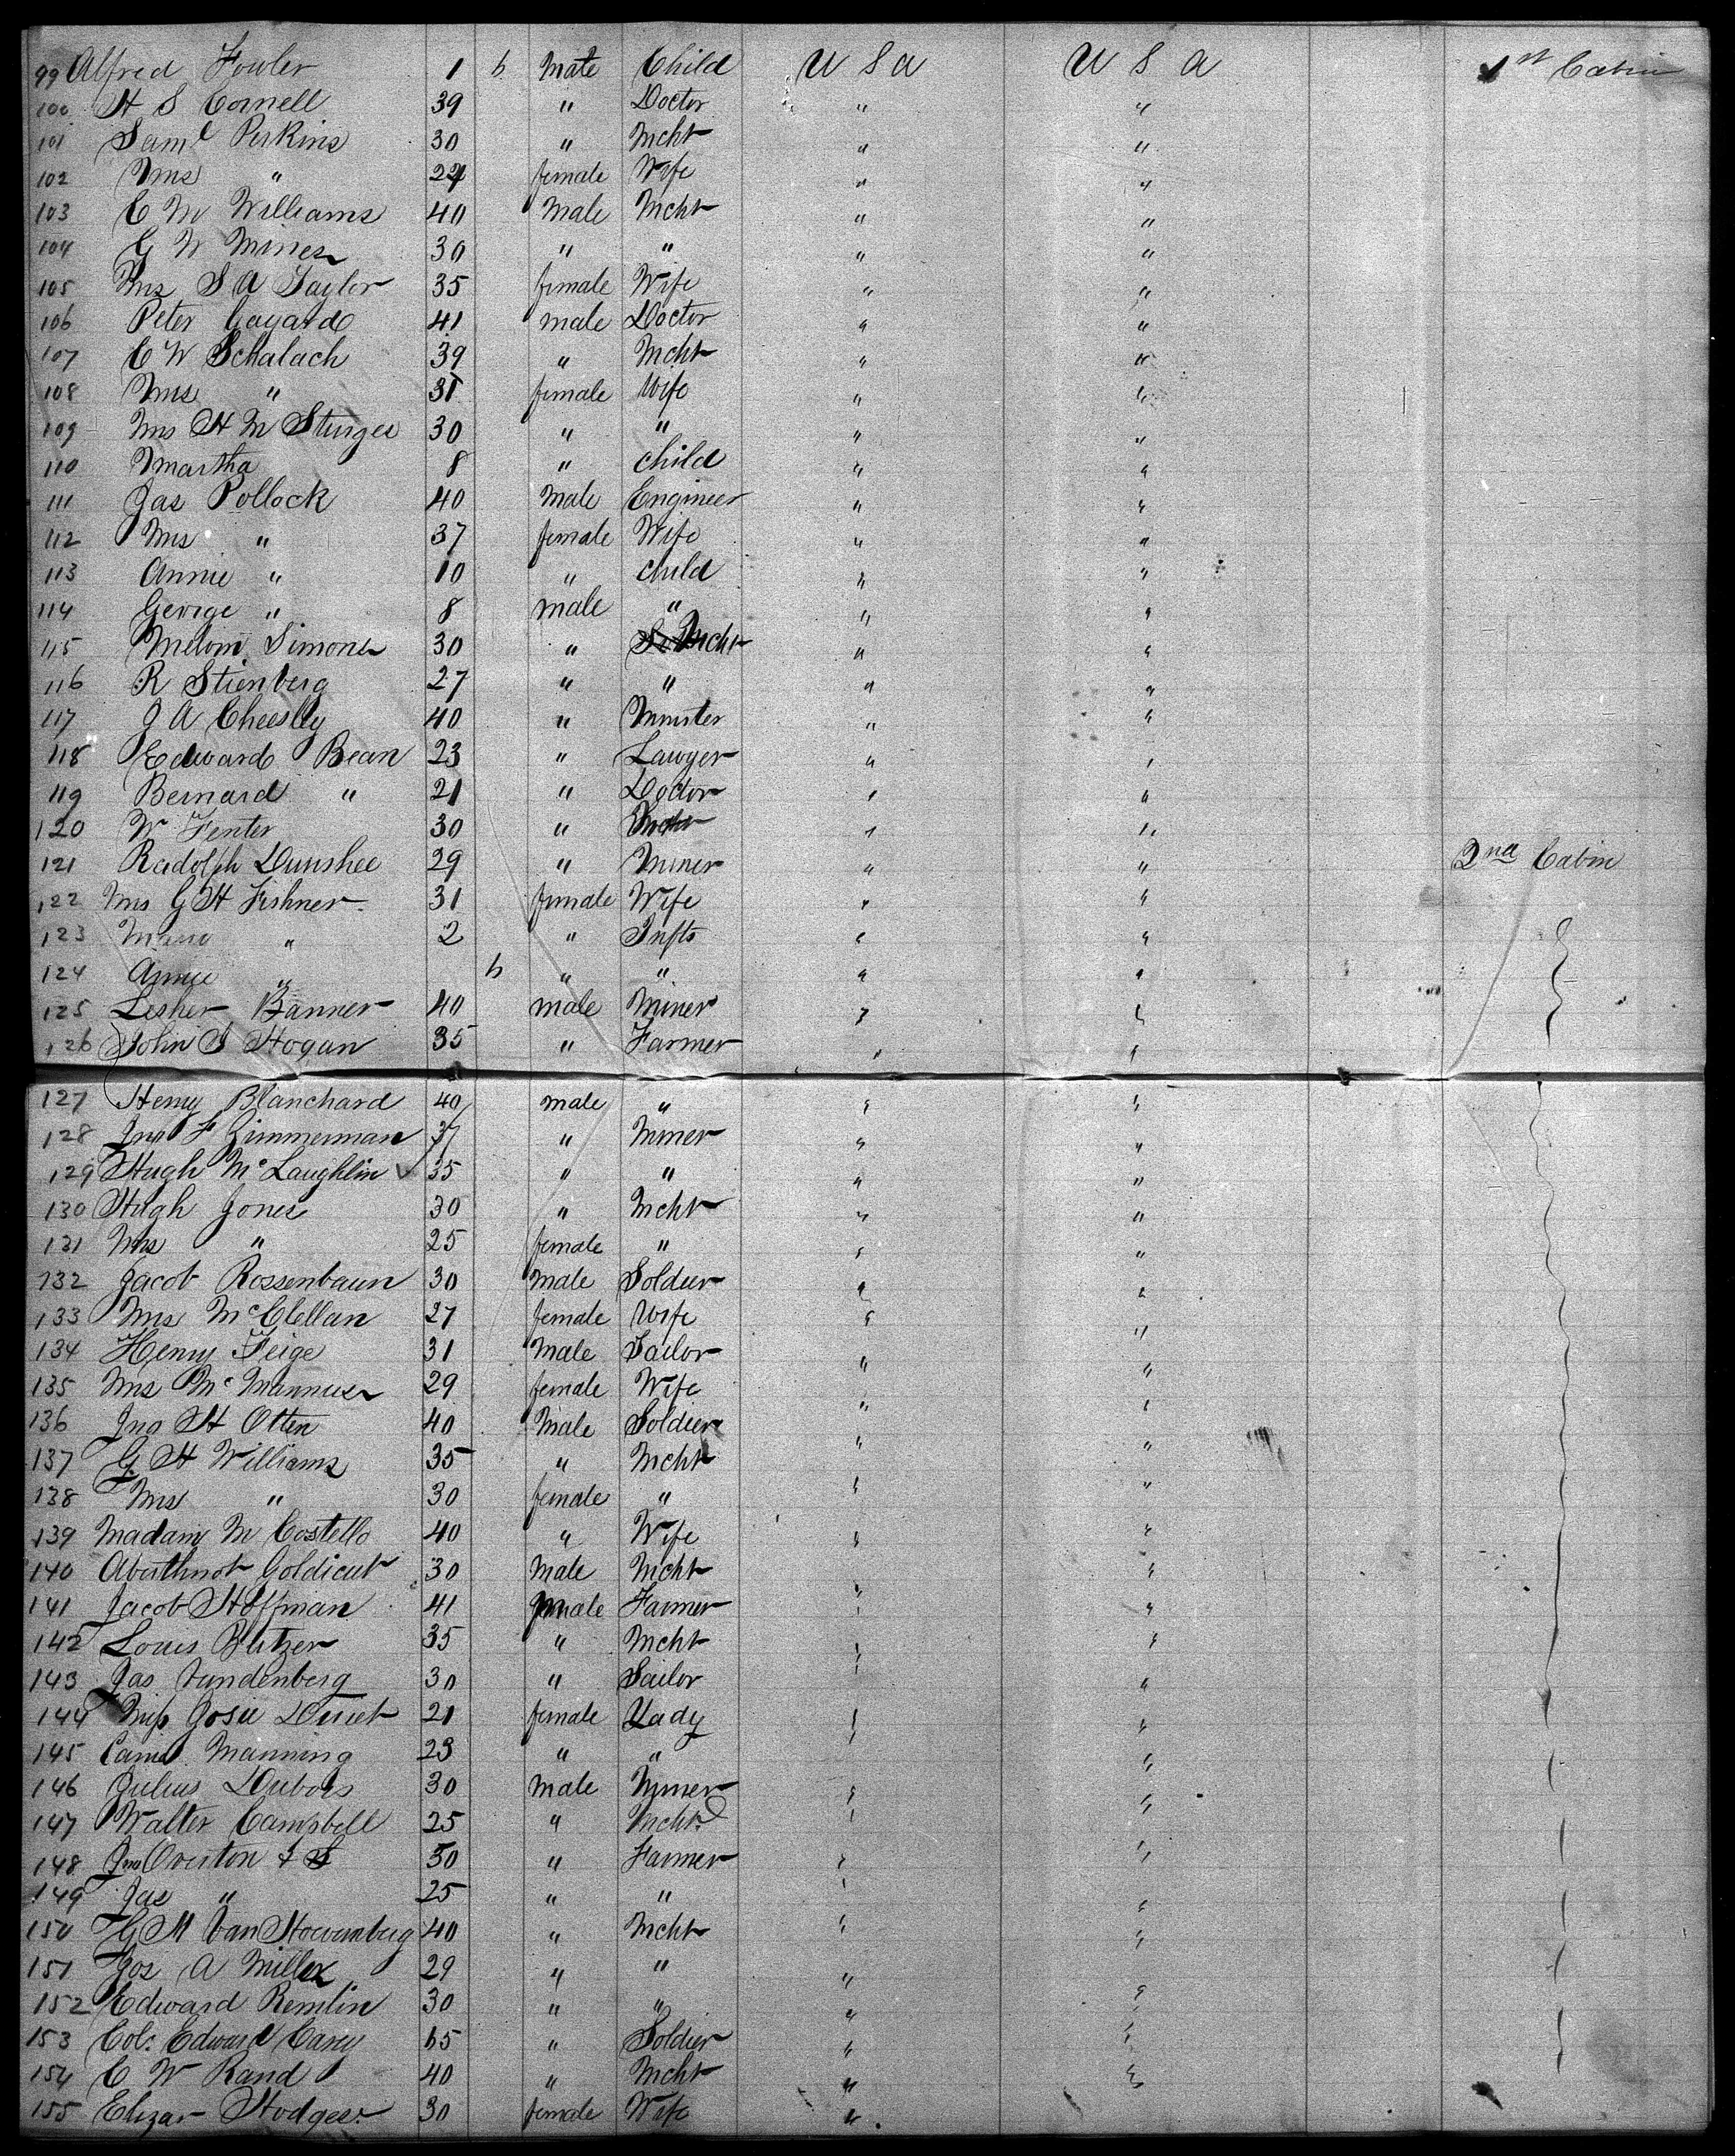 99 Alfred Fowler 1 6 Male Child U S A U S A 1st Cabin
100 H S Cornell 39 " Doctor " "
101 Saml Perkins 30 " Mcht " "
102 Mrs " 24 female Wife " "
103 C W Williams 40 Male Mcht " "
104 G W Mines 30 " " " "
105 Mrs S A Taylor 35 female Wife " "
106 Peter Gayard 41 male Doctor " "
107 C W Schalach 39 " Mcht " "
108 Mrs " 31 female Wife " "
109 Mrs H M Sturges 30 " " " "
110 Martha 8 " child " "
111 Jas Pollock 40 Male Engineer " "
112 Mrs " 37 female Wife " "
113 Annie " 10 " child " "
114 George " 8 male " " "
115 Simons 30 " Mcht " "
116 R Stienberg 27 " " " "
117 J A Cheeslly 40 " Minister " "
118 Edward Bean 23 " Lawyer " "
119 Bernard " 21 " Doctor " "
120 W Fenter 30 " " "
121 Radolph Dunshee 29 " Miner " " 2nd Cabin
122 Mrs G H Fishner 31 female Wife " "
123 " 2 " Infts " "
124 Annie " 6 " " " "
125 Lesher Banner 40 male Miner " "
126 John S Hogan 35 " Farmer " "
127 Henry Blanchard 40 male " " "
128 Jno F Zimmerman 37 " Miner " "
129 Hugh McLaughlin 35 " " " "
130 Hugh Jones 30 " Mcht " "
131 Mrs " 25 female " " "
132 Jacob Rossenbaun 30 Male Soldier " "
133 Mrs McClellan 27 female Wife " "
134 Henry Feige 31 Male Sailor " "
135 Mrs McMannus 29 female Wife " "
136 Jno H Otten 40 Male Soldier " "
137 G H Williams 35 " Mcht " "
138 Mrs " 30 female " " "
139 Madam M Costello 40 " Wife " "
140 Abuthnot Goldicut 30 Male Mcht " "
141 Jacob Hoffman 41 male Farmer " "
142 Louis Blitzer 35 " Mcht " "
143 Jas Vundenberg 30 " Sailor " "
144 Miss Josie 21 female Lady " "
145 Manning 23 " " "
146 Julius Dubois 30 Male Miner " "
147 Walter Campbell 25 " Mcht " "
148 Jno Overton & 50 " Farmer " "
149 Jas " 25 " " " "
150 G M Van Hoevenberg 40 " Mcht " "
151 Jos A Miller 29 " " " "
152 Edward Remlin 30 " " " "
153 Col. Edward Carey 65 " Soldier " "
154 C W Rand 40 " Mcht " "
155 Elizar Hodges 30 female Wife "